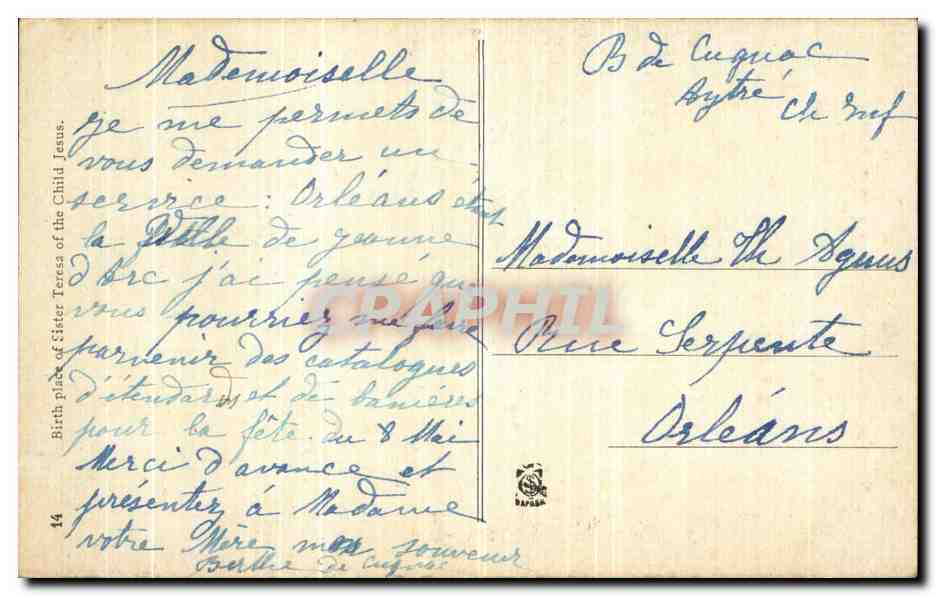 Mademoiselle
je me permets de
vous demander un
service : Orléans étant
la Ville de Jeanne
d'Arc j'ai pensé que
vous pourriez me faire
parvenir des catalogues
d'étendards et de banières
pour la fête du 8 Mai
Merci d'avance et
présentez à Madame
votre Mère mon souvenir
Berthe de Cugnac
B de Cugnac
Aytré
Ch Inf
Mademoiselle Th Agnus
Rue Serpente
Orléans
14 Birth place of Sister Teresa of the Child Jesus.
CPAPHIL